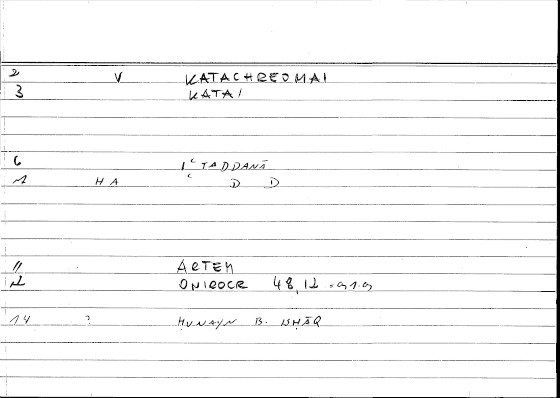 2 V KATACHREOMAI
3 KATAI
6 IʿTADDANĀ
1 HA D D
11 ARTEM
12 ONIROCR 48,12 = 91.9
14 ? ḤUNAYN B. ISḤĀQ